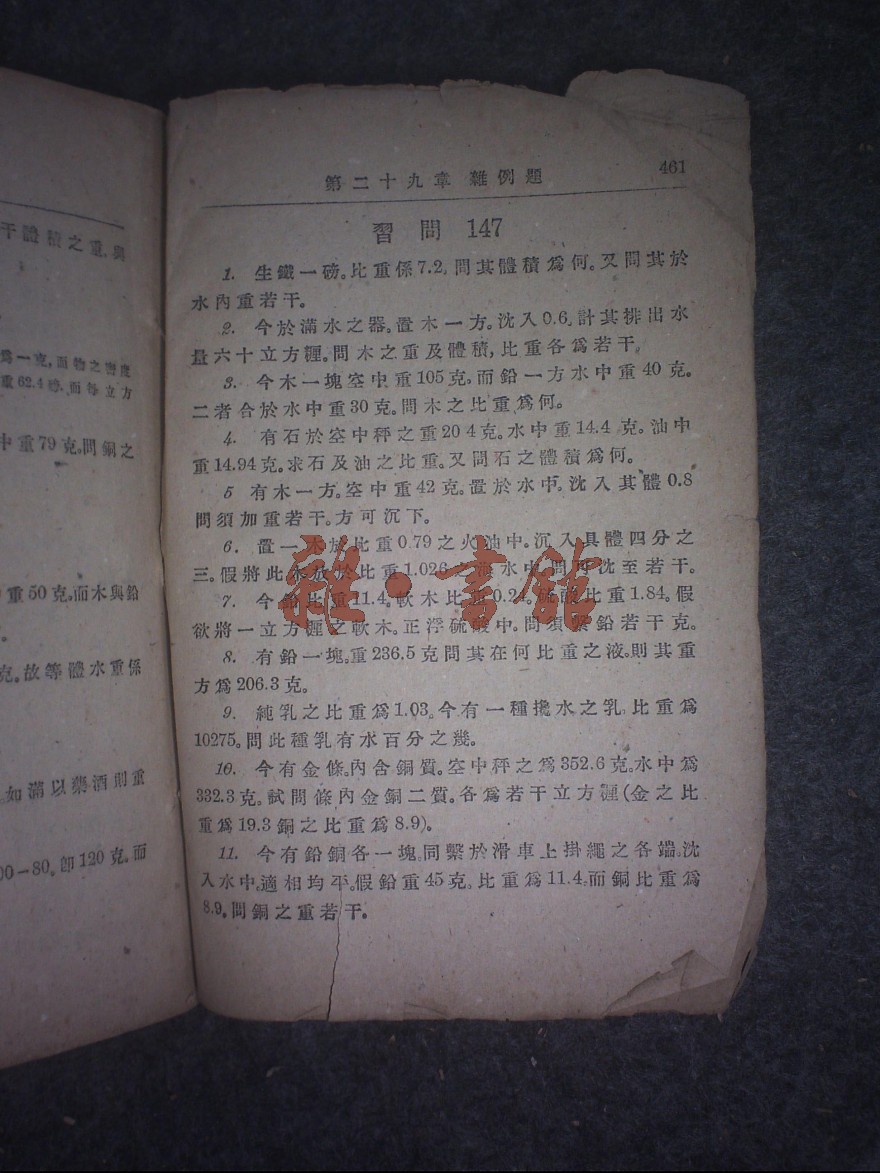 干體積之重，與
爲一克，而物之密度
重62.4磅，而每立方
中重79克。問銅之
重50克，而木與鉛
克。故等體水重係
如滿以藥酒則重
00-80。卽120克。而
第二十九章 雜例題 461
習問 147
1. 生鐵一磅。比重係7.2。問其體積爲何。又問其於
水內重若干。
2. 今於滿水之器。置木一方。沈入0.6。計其排出水
量六十立方糎。問木之重及體積，比重各爲若干。
3. 今木一塊空中重105克，而鉛一方水中重40克。
二者合於水中重30克。問木之比重爲何。
4. 有石於空中秤之重20 4克。水中重14.4 克。油中
重14.94克。求石及油之比重。又問石之體積爲何。
5 有木一方。空中重42克。置於水中。沈入其體0.8
問須加重若干。方可沉下。
6. 置一木於比重0.79之火油中。沉入具體四分之
三。假將此木放於比重1.026之海水中。問可沈至若干。
7. 今鉛比重11.4。軟木比重0.24。硫酸比重1.84。假
欲將一立方糎之軟木。正浮硫酸中。問須繫鉛若干克。
8. 有鉛一塊。重236.5克問其在何比重之液。則其重
方爲206.3克。
9. 純乳之比重爲1.03。今有一種攙水之乳。比重爲
10275。問此種乳有水百分之幾。
10. 今有金條。內含銅質。空中秤之爲352.6克。水中爲
332.3克。試問條內金銅二質。各爲若干立方糎(金之比
重爲19.3銅之比重爲8.9)。
11. 今有鉛銅各一塊。同繫於滑車上掛繩之各端。沈
入水中。適相均平。假鉛重45克。比重爲11.4。而銅比重爲
8.9。問銅之重若干。
雜·書館